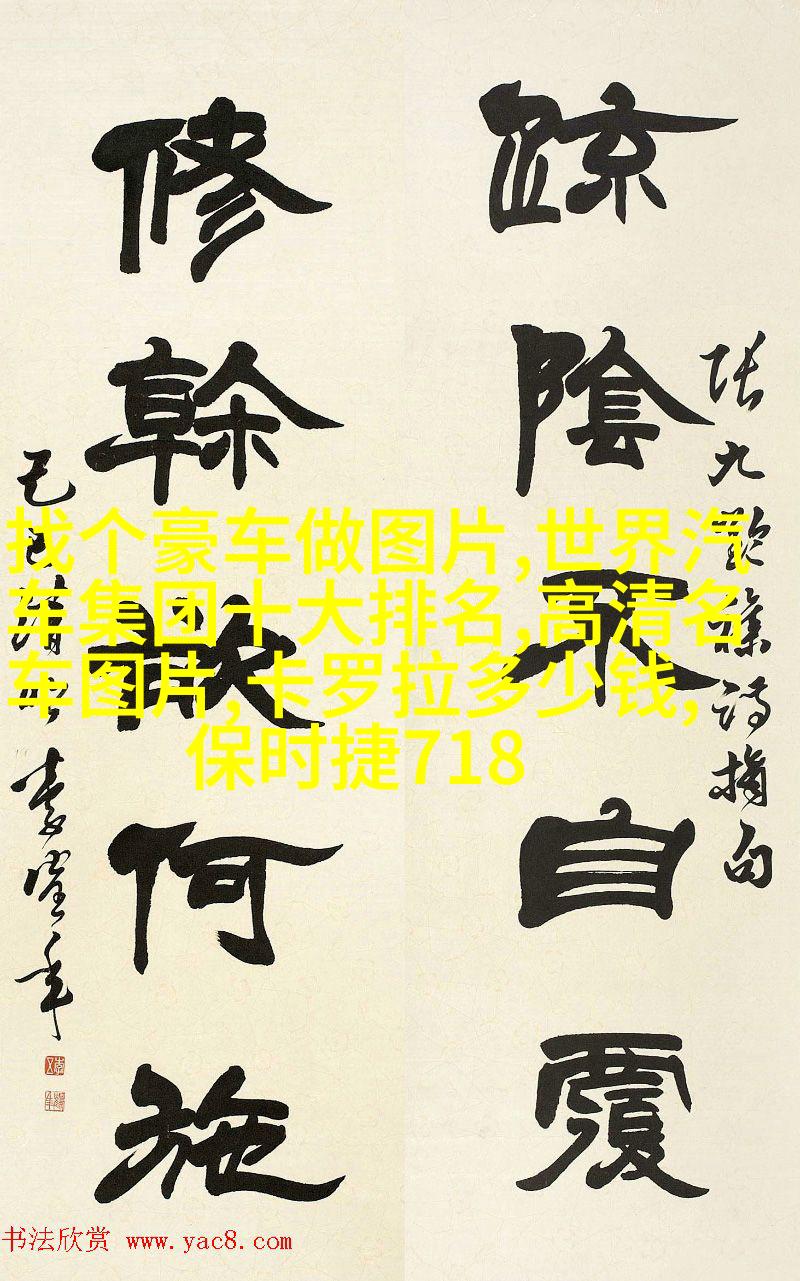 疏陰不自覆
張九齡雜詩摘句
修幹欲何施
己巳清
李鐸年
找个豪车做图片,世界汽
车集团十大排名,高清名
车图片,卡罗拉多少钱,
保时捷718
书法欣赏 www.yac8.com